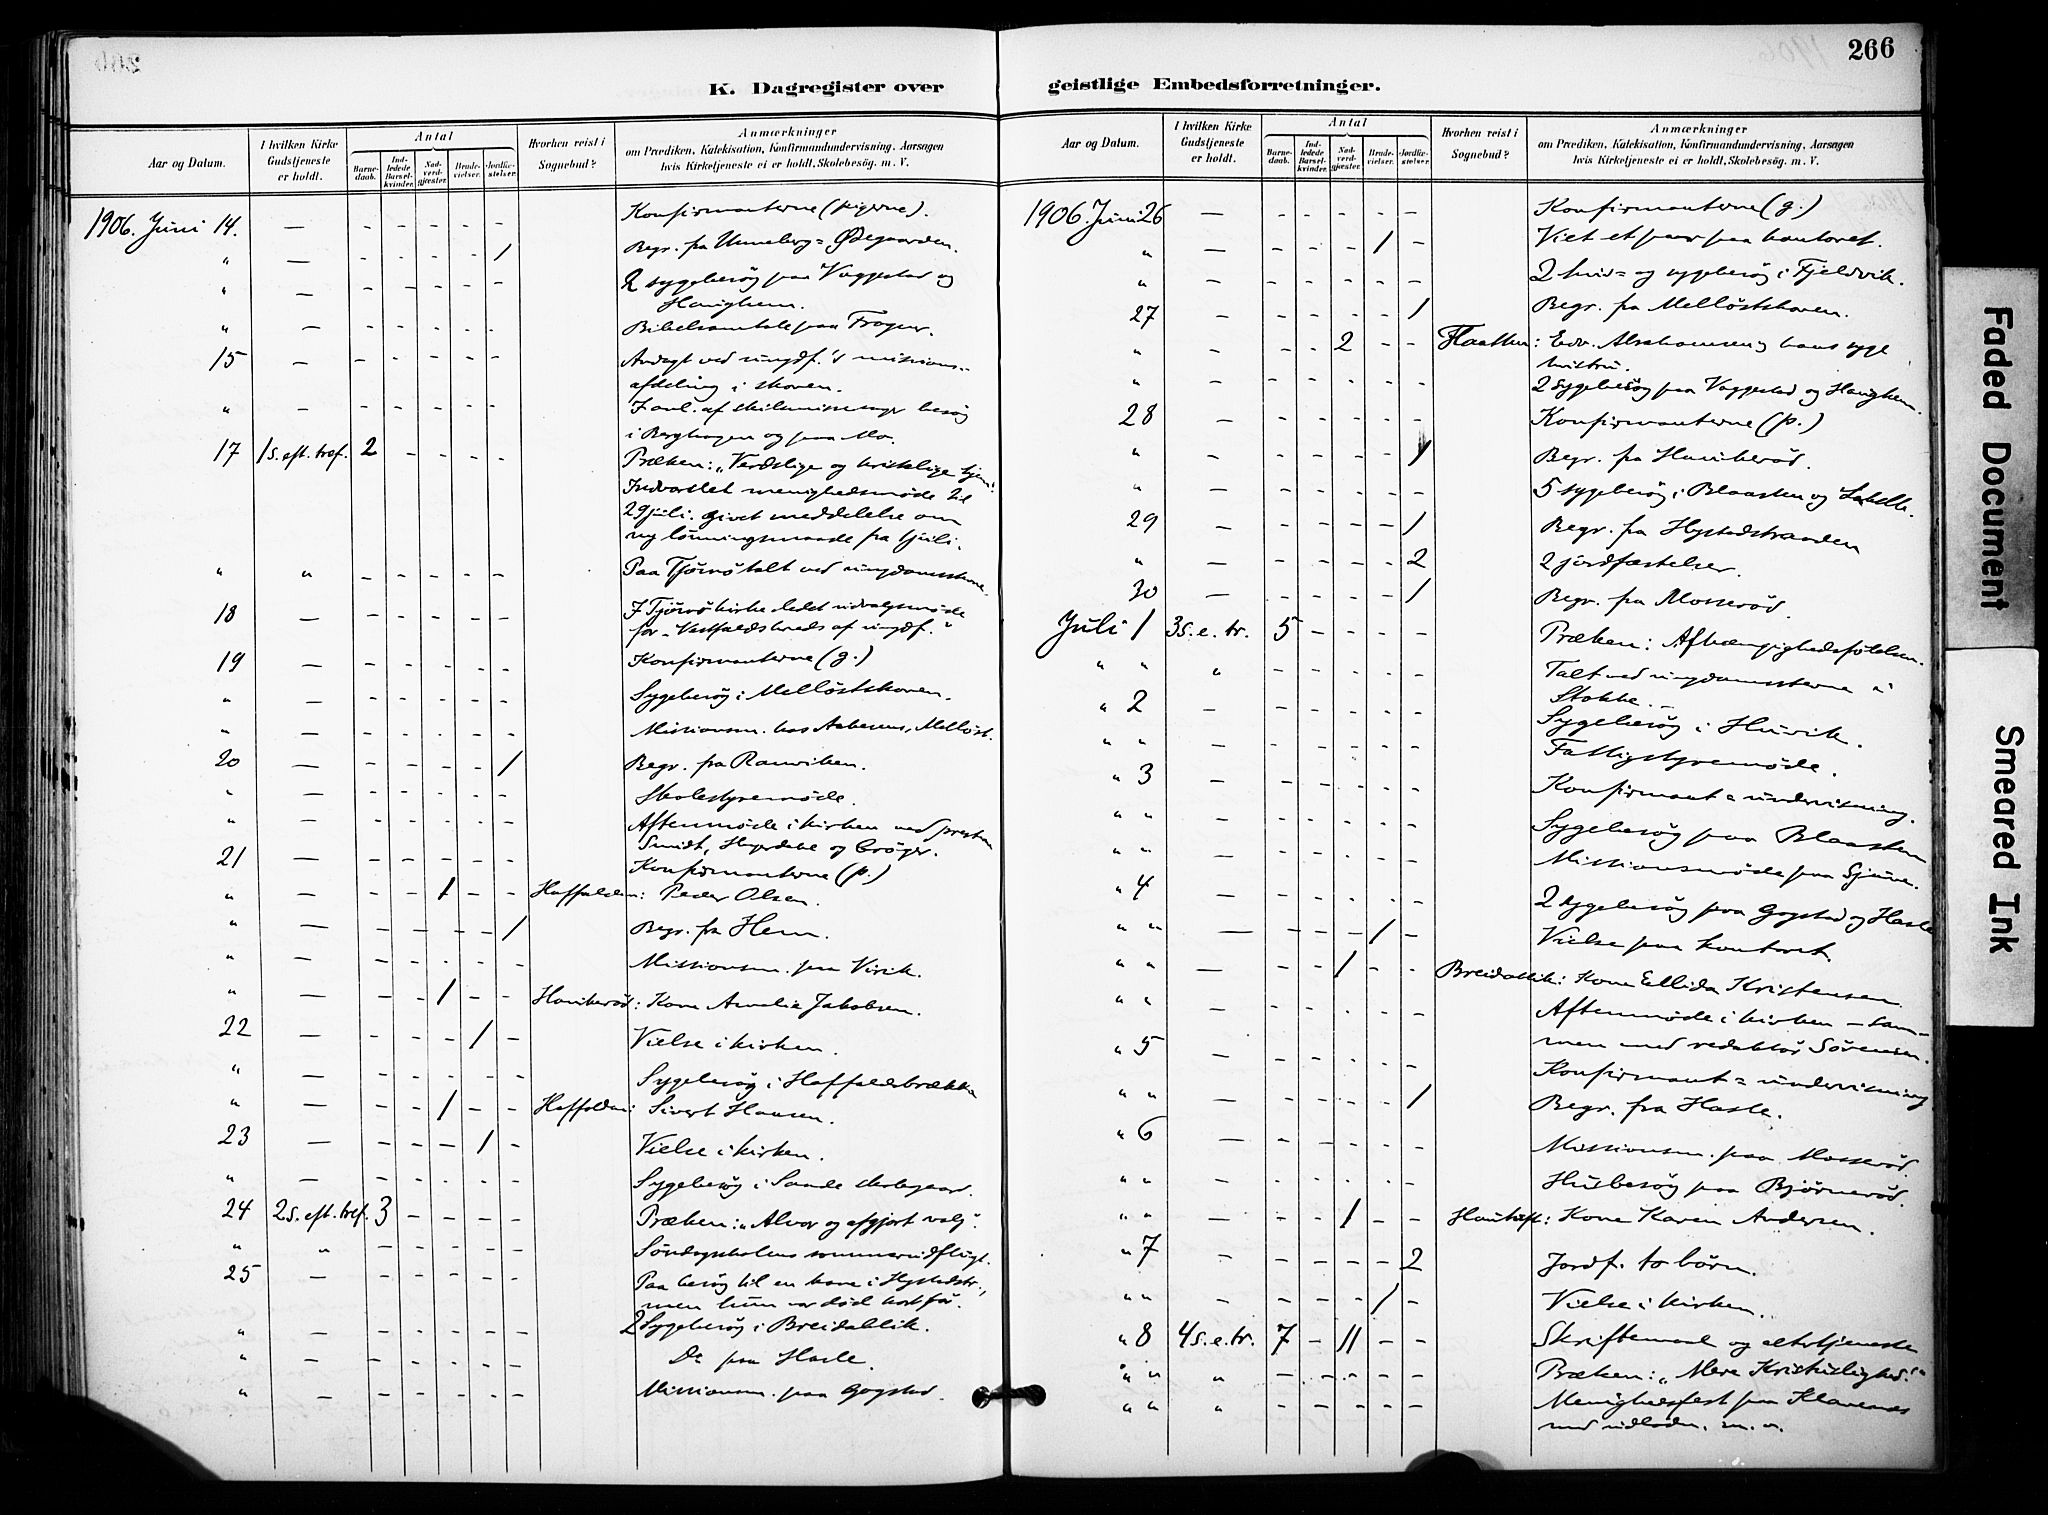 266
K. Dagregister over geistlige Embedsforretninger.
Aar og Datum.
I hvilken Kirke Gudstjeneste er holdt.
Antal
Barnedaab.
Indledede Barselkvinder.
Nadverdgjæster.
Brudevielser.
Jordfæstelser.
Hvorhen reist i Sognebud?
Anmærkninger
om Prædiken, Katekisation, Konfirmandundervisning, Aarsagen
hvis Kirketjeneste ei er holdt, Skolebesög. m. V.
1906. Juni 14. — - - - - - Konfirmanterne (pigerne).
" — - - - - 1 Begr. fra Unneberg = Ødegaarden.
" — - - - - - 2 sygebesög paa Vaggestad og
Haughem.
" — - - - - - Bibelsamtale paa Frogner.
15 — - - - - - Andagt ved ungdf.'s missions-
afdeling i skoven.
" - - - - - - besög
i Berghagen og paa Mo.
17 1 s. eft. tref. 2 - - - - Præken: "Verdslige og kristelige
menighedsmöde til
29 juli. Givet meddelelse om
ny lönningsmaade fra 1 juli.
" " - - - - - Paa Tjömö talt ved ungdomsstevne.
18 — - - - - - I Tjömö kirke ledet udvalgsmöde
for "Vestfoldskreds af ungdf."
19 — - - - - - Konfirmanterne (g.)
" — - - - - - Sygebesög i Mellöstskoven.
" — - - - - - Missionsm. hos Mellöst.
20 — - - - - 1 Begr. fra Ranviken.
" — - - - - - Skolestyremöde.
" — - - - - - Aftenmöde i kirken ved presterne
Smidt, og Cröger.
21 — - - - - - Konfirmanterne (p.)
" — - - 1 - - Haffalden: Peder Olsen.
" — - - - - 1 Begr. fra Hem.
" — - - - - - Missionsm. paa Virik.
" — - - 1 - - Hauberöd: Kone Amelia Jakobsen.
22 — - - - 1 - Vielse i kirken.
" — - - - - - Sygebesög i
" — - - 1 - - Sivert Hansen.
23 — - - - 1 - Vielse i kirken.
" — - - - - - Sygebesög i Sande
24 2 s. eft. tref. 3 - - - - Præken: "Alvor og afgjort valg".
" " - - - - - Söndagsskolens sommerudflugt.
25 — - - - - - Paa besög til en kone i Hystadstr.,
men hun var död kort för.
" — - - - - - 2 Sygebesög i Breidablik.
" — - - - - - Do paa Hasle.
" — - - - - - Missionsm. paa Gogstad.
Aar og Datum.
I hvilken Kirke Gudstjeneste er holdt.
Antal
Barnedaab.
Indledede Barselkvinder.
Nadverdgjæster.
Brudevielser.
Jordfæstelser.
Hvorhen reist i Sognebud?
Anmærkninger
om Prædiken, Katekisation, Konfirmandundervisning, Aarsagen
hvis Kirketjeneste ei er holdt, Skolebesög. m. V.
1906. Juni 26 — - - - - - Konfirmanterne (g.)
" — - - - 1 - Viet et par paa kontoret.
" — - - - - - 2 hus= og sygebesög i Fjeldvik.
27 - - - - - 1 Begr. fra Mellöstskoven.
" - - - 2 - - Flaatten: Edv. Abrahamsen og hans syge
hustru.
" - - - - - - 2 sygebesög paa Vaggestad og Haughem.
28 — - - - - - Konfirmanterne (p.)
" - - - - - 1 Begr. fra Hauberöd.
" — - - - - - 5 sygebesög i Blaasten og
29 — - - - - 1 Begr. fra Hystadstranden
" - - - - - 2 2 jordfæstelser.
30 — - - - - 1 Begr. fra Mosseröd.
Juli 1 3 s. e. tr. 5 - - - - Præken: Afhængighedsfölelsen.
" " " - - - - - Talt ved ungdomsstevne i
Stokke.
" 2 - - - - - - Sygebesög i Huvik.
" " - - - - - - Fattigstyremöde.
" 3 - - - - - - Konfirmant = undervisning.
" " - - - - - - Sygebesög paa Blaasten
" " - - - - - - Missionsmöde paa
" 4 - - - - - - 2 sygebesög paa Gogstad og Hasle
" " — - - - 1 - Vielse paa kontoret.
" " — - - 1 - - Breidablik: Kone Ellida Kristensen.
" " - - - - - - Aftenmöde i kirken - sam-
men med redaktör Sörensen.
" 5 - - - - - - Konfirmant = undervisning
" " — - - - - 1 Begr. fra Hasle.
" 6 — - - - - - Missionsm. paa Mosseröd
" " - - - - - - Husbesög paa Bjørneröd.
" " — - - 1 - - Kone Karen Andersen.
" 7 - - - - - 2 Jordf. to börn.
" " - - - - 1 - Vielse i kirken.
" 8 4 s. e. tr. 7 - 11 - - Skriftemaal og altertjeneste
" " " - - - - - Præken: "Mere Kristuslighed."
" " " - - - - - Menighedsfest paa Klavenes
med udlodn. m. v.
Faded Document
Smeared Ink